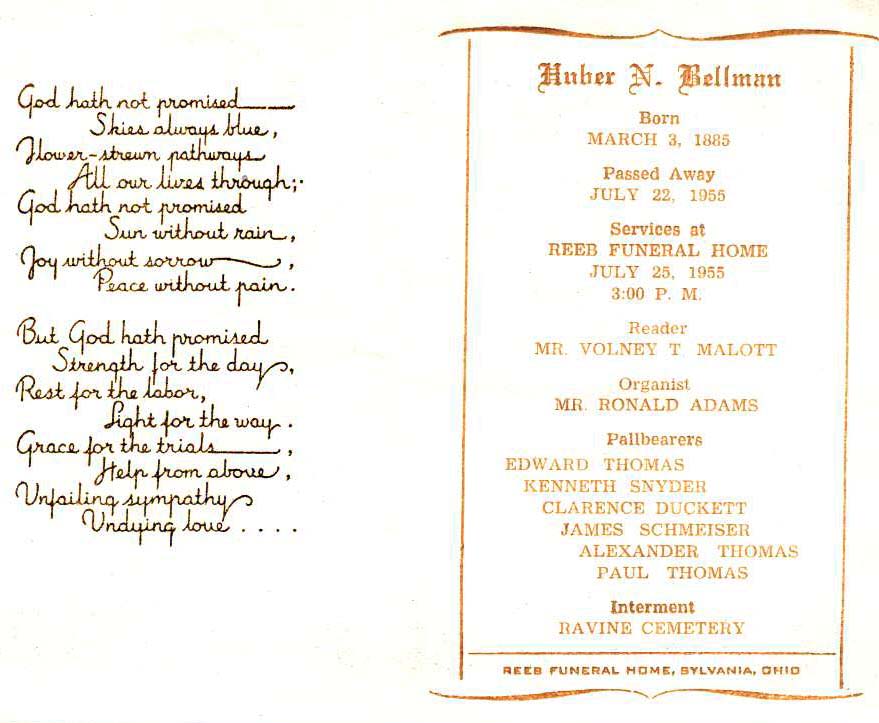 God hath not promised
Skies always blue,
Flower-strewn pathways
All our lives through;
God hath not promised
Sun without rain,
Joy without sorrow,
Peace without pain.
But God hath promised
Strength for the day,
Rest for the labor,
Light for the way.
Grace for the trials,
Help from above,
Unfailing sympathy
Undying love ....
Huber N. Bellman
Born
MARCH 3, 1885
Passed Away
JULY 22, 1955
Services at
REEB FUNERAL HOME
JULY 25, 1955
3:00 P. M.
Reader
MR. VOLNEY T MALOTT
Organist
MR. RONALD ADAMS
Pallbearers
EDWARD THOMAS
KENNETH SNYDER
CLARENCE DUCKETT
JAMES SCHMEISER
ALEXANDER THOMAS
PAUL THOMAS
Interment
RAVINE CEMETERY
REEB FUNERAL HOME, SYLVANIA, OHIO